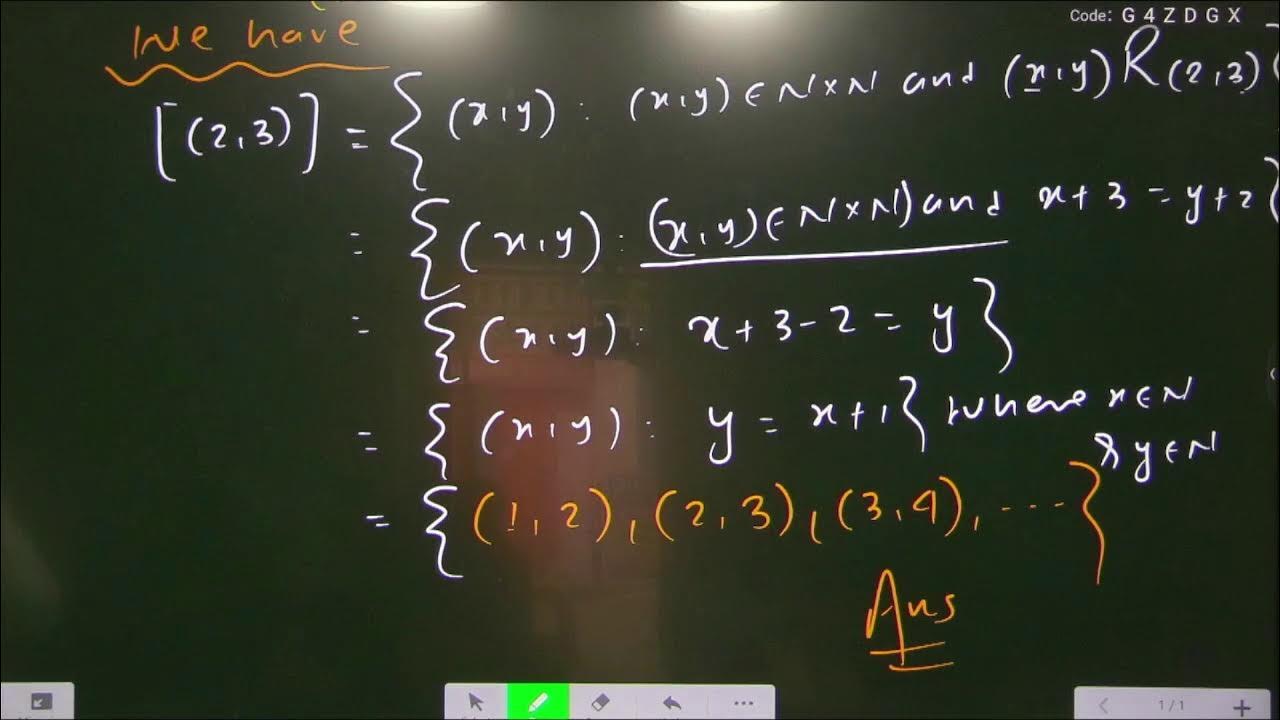 Code: G 4 Z D G X
We have
[(2,3)] = {(x,y) : (x,y) ∈ N×N and (x,y) R (2,3)}
= {(x,y) : (x,y) ∈ N×N) and x+3 = y+2}
= {(x,y) : x+3-2 = y}
= {(x,y) : y = x+1} where x∈N
& y∈N
= {(1,2), (2,3), (3,4), ...}
Ans
1/1